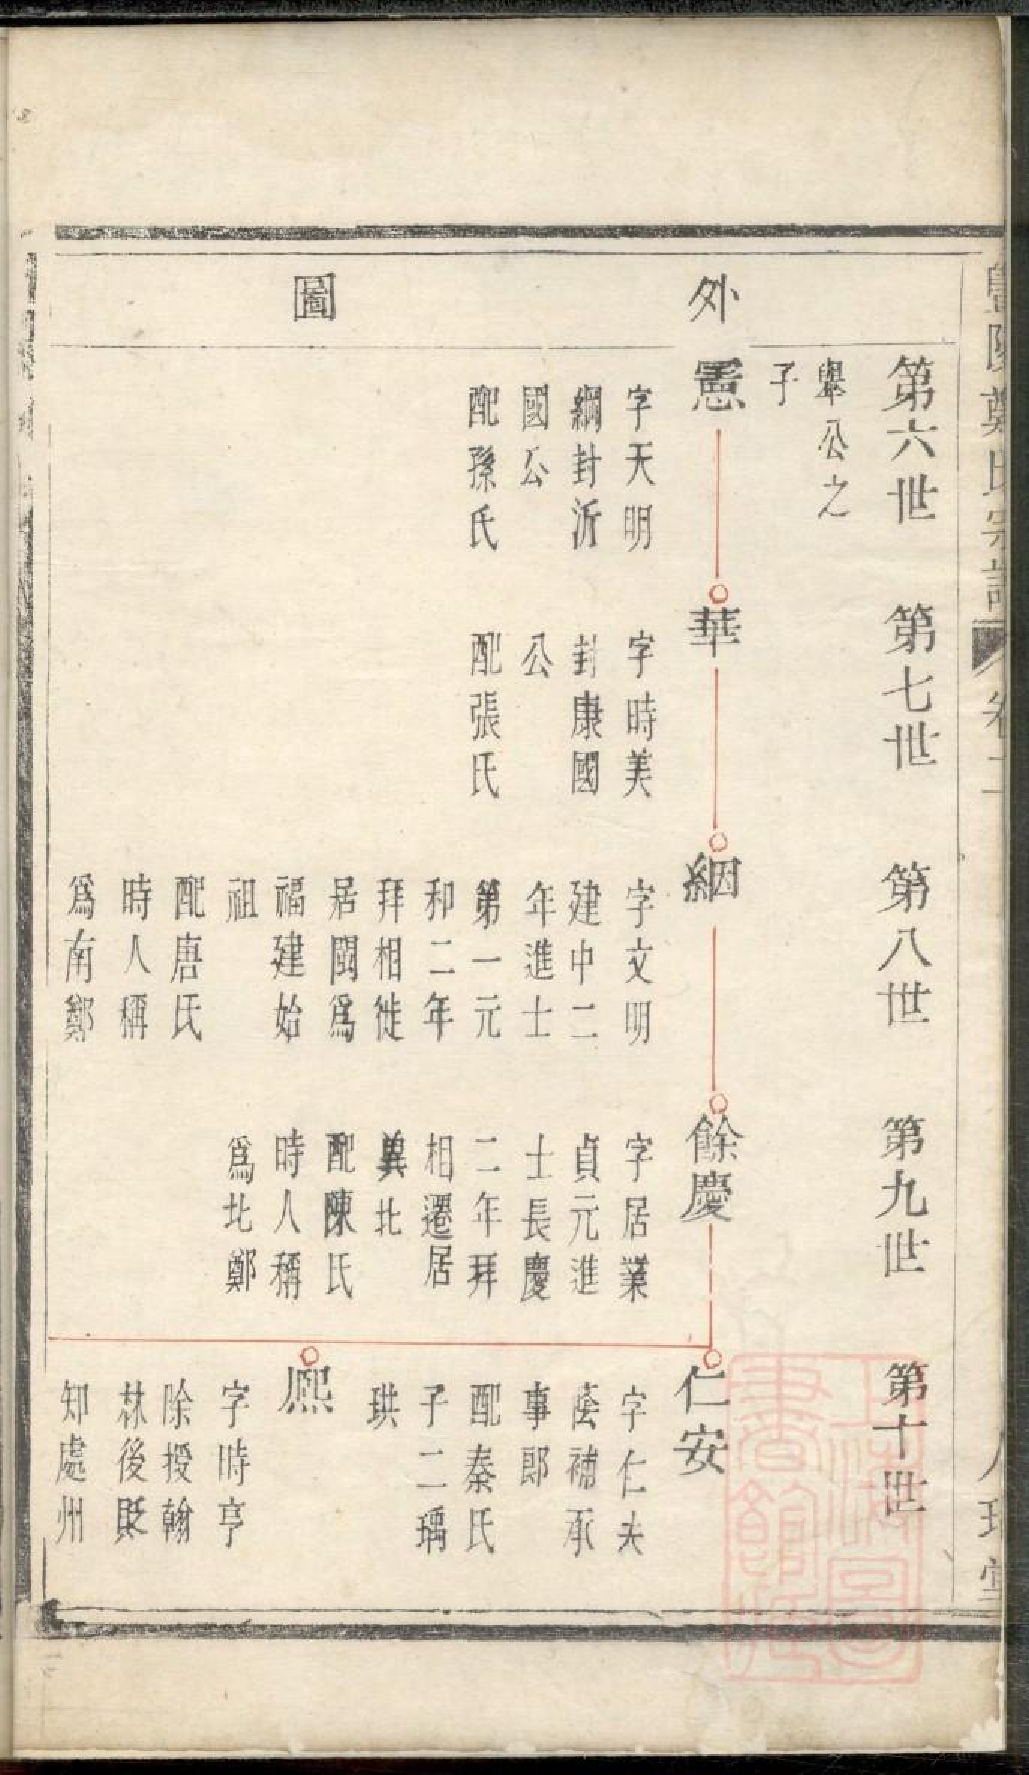 暨陽鄭氏宗譜
卷二
外
圖
第六世
第七世
第八世
第九世
第十世
舉公之
子
憲
字天明
綱封沂
國公
配孫氏
華
字時美
封康國
公
配張氏
絪
字文明
建中二
年進士
第一元
和二年
拜相徙
居閩爲
福建始
祖
配唐氏
時人稱
爲南鄭
餘慶
字居業
貞元進
士長慶
二年拜
相遷居
冀北
配陳氏
時人稱
爲北鄭
仁安
字仁夫
蔭補承
事郎
配秦氏
子二瑀
珙
熈
字時亨
除授翰
林後貶
知處州